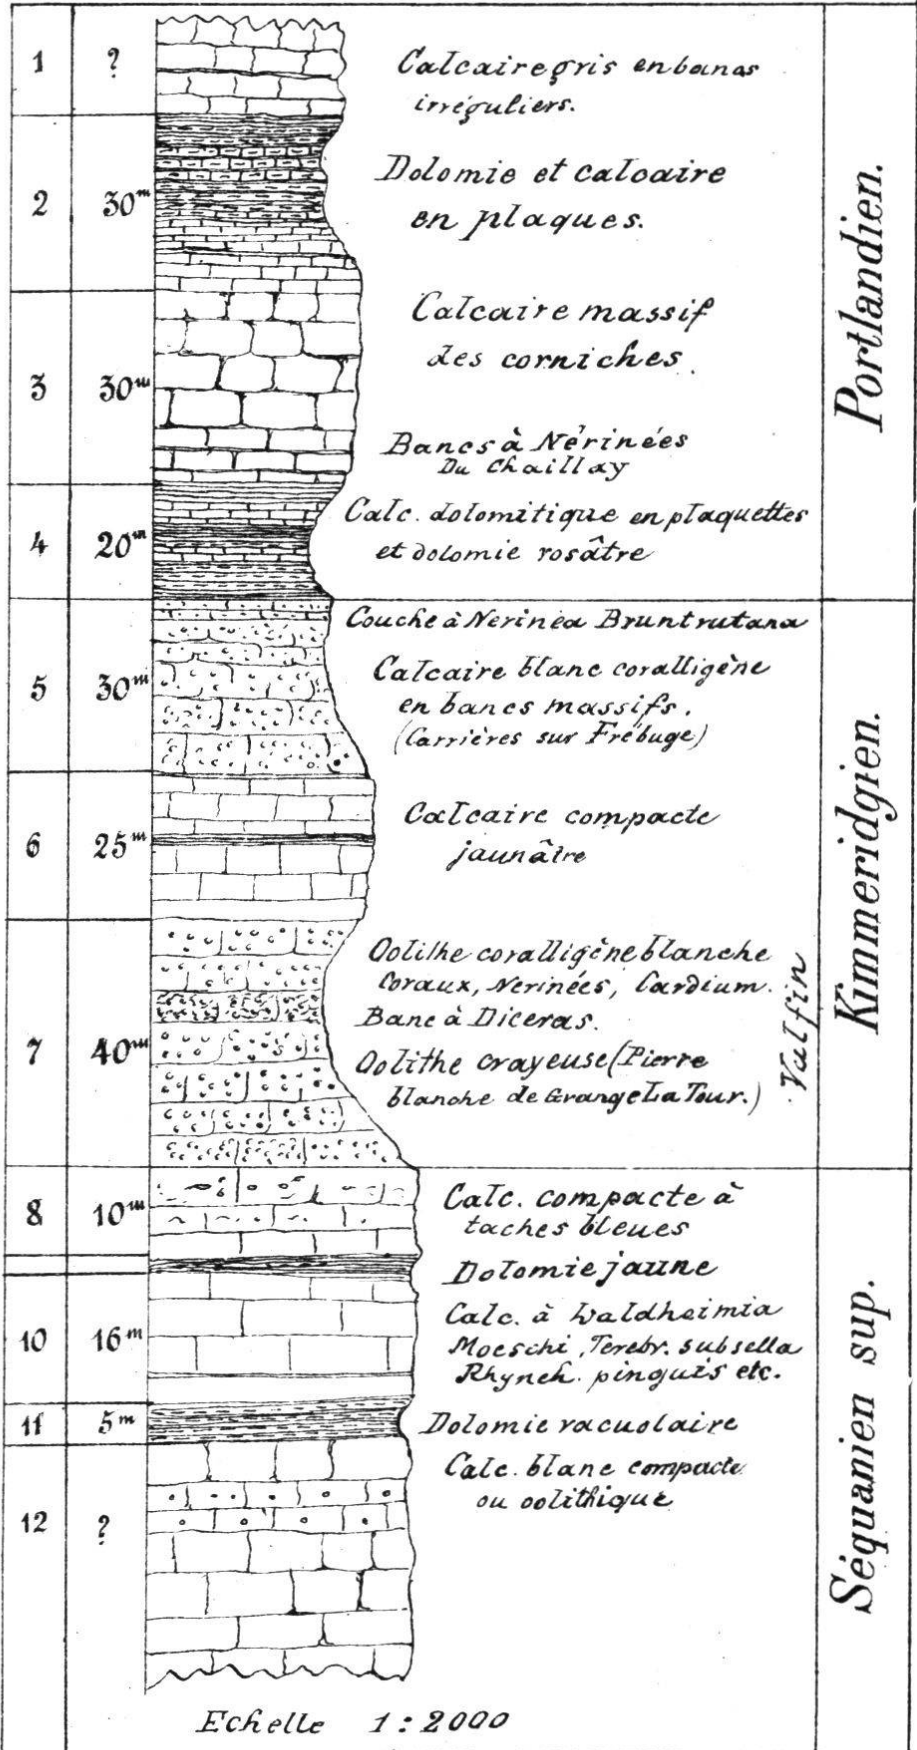 1 ? Calcaire gris en bancs
irréguliers.
2 30m Dolomie et calcaire
en plaques.
3 30m Calcaire massif
des corniches.
Bancs à Nérinées
Du Chaillay
4 20m Calc. dolomitique en plaquettes
et dolomie rosâtre
Portlandien.
Couche à Nerinea Bruntrutana
5 30m Calcaire blanc coralligène
en bancs massifs.
(Carrières sur Frébuge)
6 25m Calcaire compacte
jaunâtre
7 40m Oolithe coralligène blanche
Coraux, Nerinées, Cardium.
Banc à Diceras.
Oolithe crayeuse (Pierre
blanche de Grange La Tour.)
Valfin
Kimmeridgien.
8 10m Calc. compacte à
taches bleues
Dolomie jaune
10 16m Calc. à Waldheimia
Moeschi, Terebr. subsella
Rhynch. pinguis etc.
11 5m Dolomie vacuolaire
12 ? Calc. blanc compacte
ou oolithique
Séquanien sup.
Echelle 1:2000